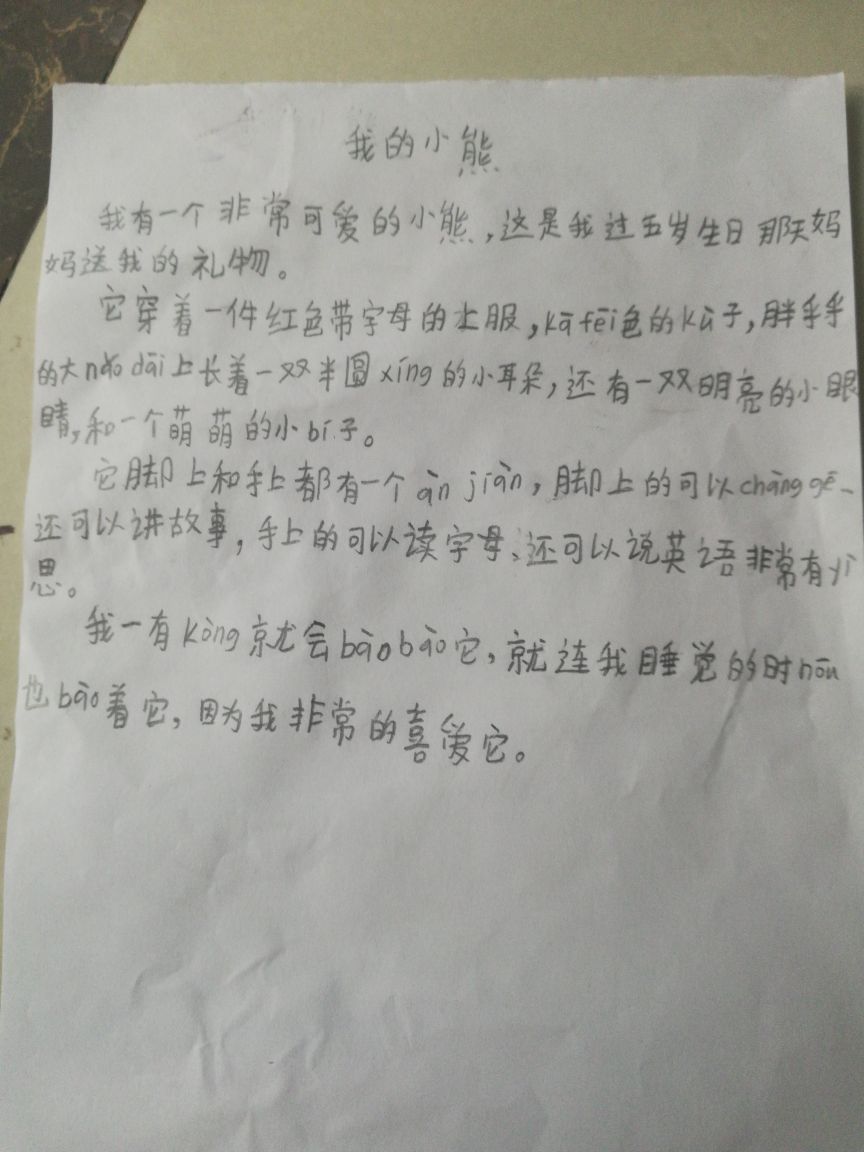 我的小熊
我有一个非常可爱的小熊，这是我过五岁生日那天妈
妈送我的礼物。
它穿着一件红色带字母的上服，kā fēi色的kù子，胖乎乎
的大nǎo dāi上长着一双半圆xíng的小耳朵，还有一双明亮的小眼
睛，和一个萌萌的小bí子。
它脚上和手上都有一个àn jiàn，脚上的可以chàng gē、
还可以讲故事，手上的可以读字母、还可以说英语非常有yì
思。
我一有kòng就会bào bào它，就连我睡觉的时hou
也bào着它，因为我非常的喜爱它。